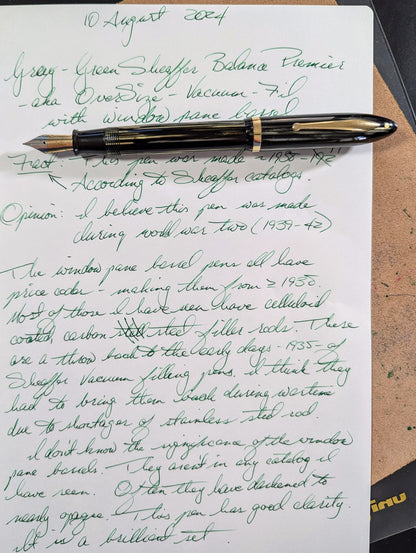 10 August 2024
Gray-Green Sheaffer Balance Premier
- aka OverSize - Vacuum-Fil
with window pane barrel
Fact: - This pen was made
According to Sheaffer catalogs.
Opinion: I believe this pen was made
during world war two (1939-42)
The window pane barrel pens all have
price codes - making them from ≥ 1938.
Most of those I have seen have celluloid
coated, carbon steel filler rods. These
are a throw back to the early days - 1935 - of
Sheaffer Vacuum filling pens. I think they
had to bring them back during wartime
due to shortages of stainless steel rod.
I don't know the significance of the window
pane barrels. They aren't in any catalog I
have seen. Often they have darkened to
nearly opaque. This pen has good clarity.
It is a brilliant set.